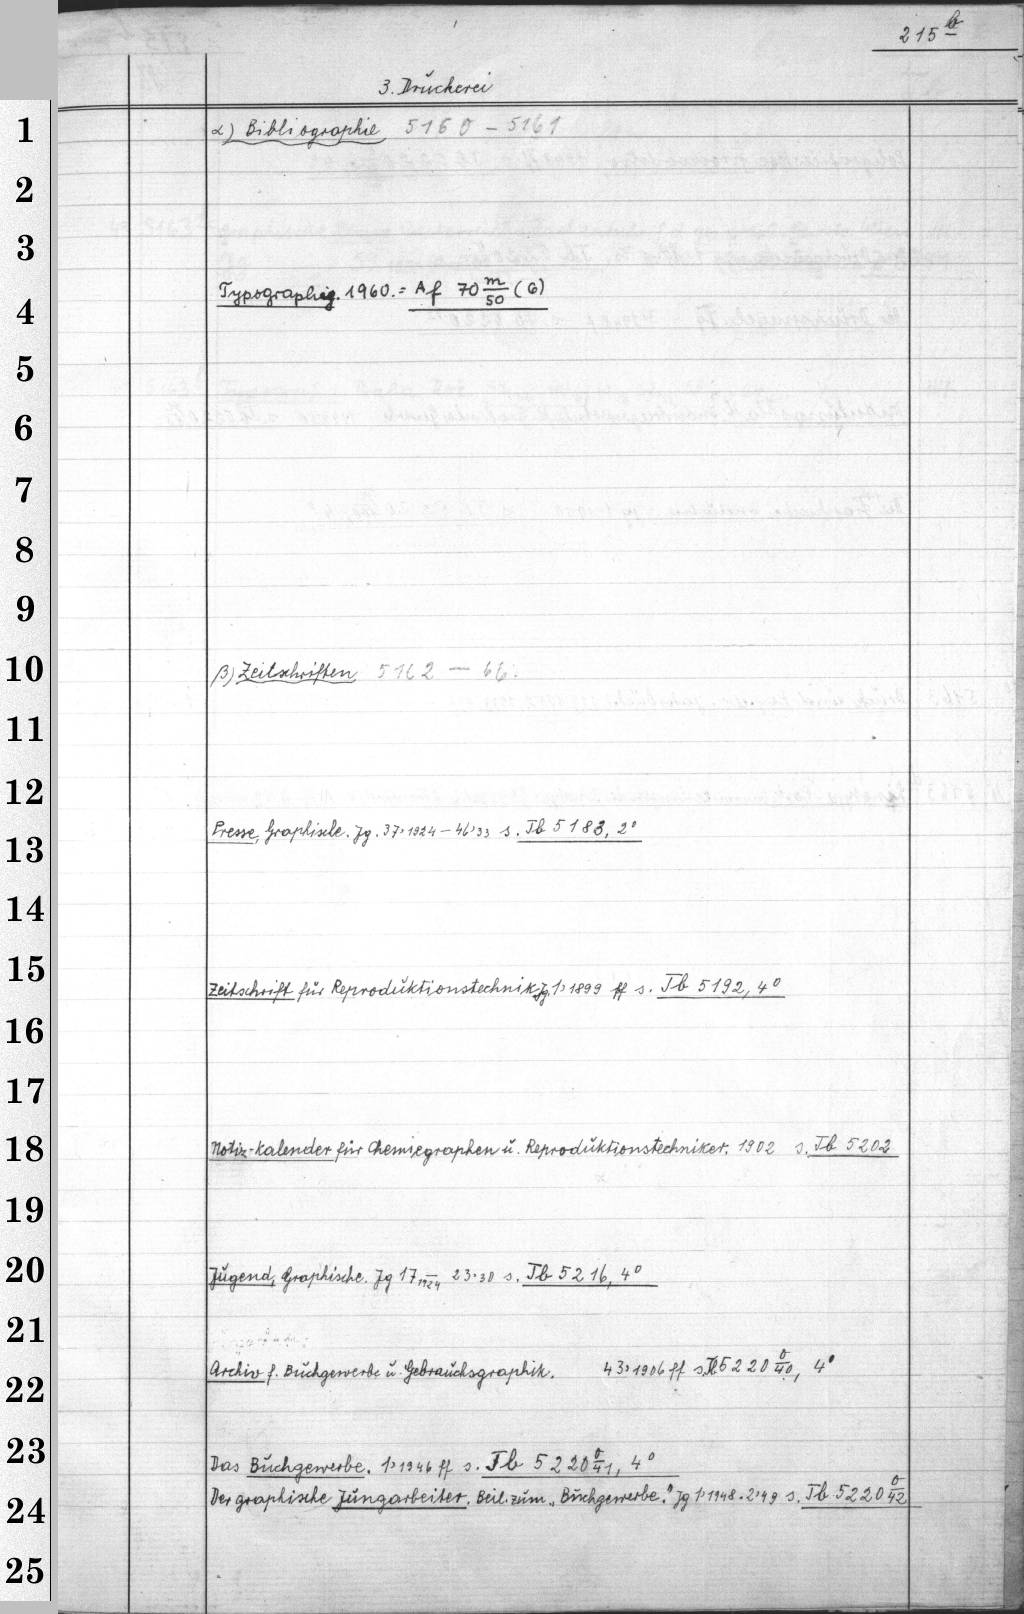 215 b
3. Druckerei
1
α) Bibliographie 5160 - 5161
2
3
Typographie. 1960. = Af 70 m/50 (6)
4
5
6
7
8
9
10
β) Zeitschriften 5162 - 66.
11
12
Presse, Graphische. Jg. 37, 1924 - 46, 33 s. Tb 5183, 2°
13
14
15
Zeitschrift für Reproduktionstechnik Jg. 1, 1899 ff s. Tb 5192, 4°
16
17
18
Notiz-Kalender für Chemiegraphen u. Reproduktionstechniker. 1902 s. Tb 5202
19
20
Jugend, Graphische. Jg 17, 1924 - 23, 30 s. Tb 5216, 4°
21
Archiv f. Buchgewerbe u. Gebrauchsgraphik. 43, 1906 ff s. Tb 5220 0/40, 4°
22
23
Das Buchgewerbe. 1, 1946 ff s. Tb 5220 0/41, 4°
Der graphische Jungarbeiter. Beil. zum „Buchgewerbe." Jg 1, 1948 - 2, 49 s. Tb 5220 0/42
24
25